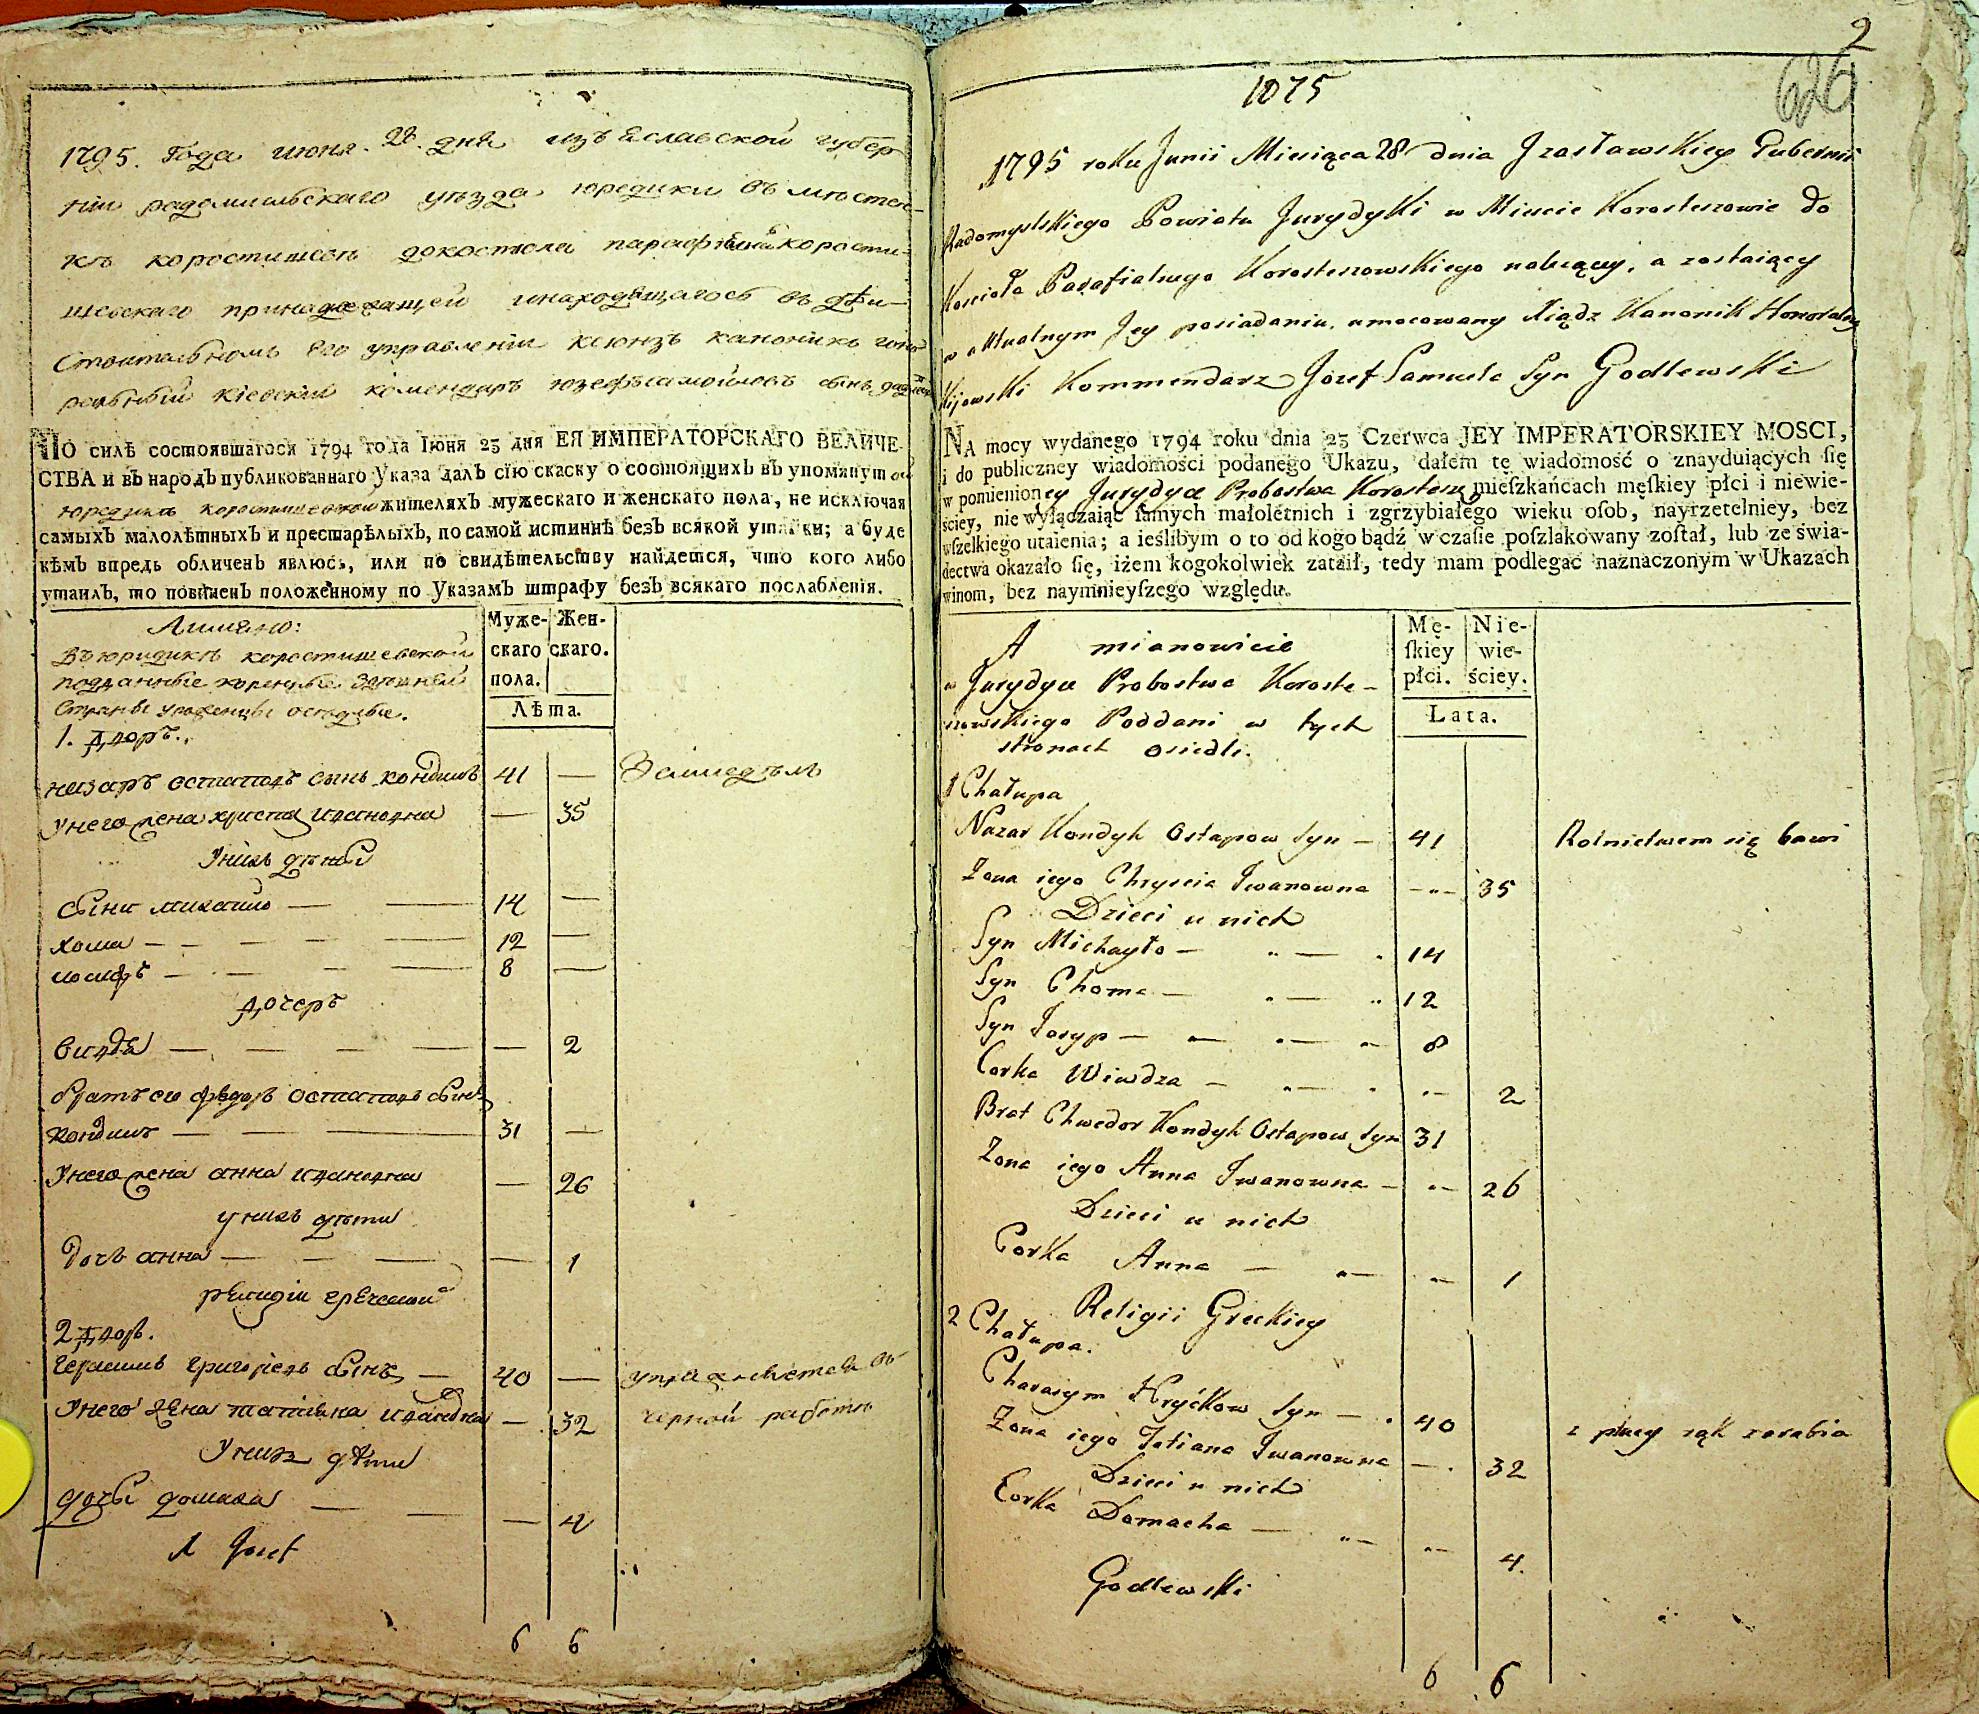 1795. Года июня. 28. дня изъ Еславской губер
нии радомисльскаго уезда юредики въ мѣстеч-
кѣ коростишевѣ докостела парафіѣльнь корости-
шевскаго принадлежащей инаходящагось въ дѣи-
Стоительномъ Его управленіи ксіонзъ каноникъ гоно
рельный кіевский комендаръ юзефъ самойловъ сынъ
ПО силѣ состоявшагося 1794 года Іюня 23 дня ЕЯ ИМПЕРАТОРСКАГО ВЕЛИЧЕ-
СТВА и въ народъ публикованнаго Указа далъ сію скаску о состоящихъ въ упомянутой
юредикѣ коростишевской жителяхъ мужескаго и женскаго пола, не исключая
самыхъ малолѣтныхъ и престарѣлыхъ, по самой истиннѣ безъ всякой утайки; а буде
кѣмъ впредь обличенъ явлюсь, или по свидѣтельству найдется, что кого либо
утаилъ, то повиненъ положенному по Указамъ штрафу безъ всякаго послабленія.
Муже-
скаго
пола.
Жен-
скаго.
Лѣта.
Аимено:
Въюридикѣ коростишевской
подданные коренные здешней
Страны уроженцы оседлые.
1. дворъ.
назаръ остаповъ сынъ кондикъ 41 —
Унего жена христя ивановна — 35
Унихъ дѣти
сыни михаило — — 14 —
хома — — — — — 12 —
иосифъ — — — — 8 —
дочеръ
вивдя — — — — — 2
братъ его федоръ остаповъ сынъ
кондикъ — — — 31 —
Унего жена анна ивановна — 26
у нихъ дѣти
дочь анна — — — — 1
религіи греческой
2 дворъ.
герасимъ григорiевъ сынъ — 40 — упражняется въ
Унего жена татіяна ивановна — 32 черной работѣ
Унихъ дѣти
дочь домаха — — — 4
X Jozef
6 6
2
626
1075
1795 roku Junii Miesiąca 28 dnia Jzasławskiey Gubernii
Radomyslskiego Powiatu Jurydyki w Miescie Korosteszowie do
Kościoła Parafialnego Korosteszowskiego należący, a zostaiący
w aktualnym Jey posiadaniu, umocowany Xiądz Kanonik Honoralny
Kijowski Kommendarz Jozef Samuela Syn Godlewski
NA mocy wydanego 1794 roku dnia 23 Czerwca JEY IMPERATORSKIEY MOSCI,
i do publiczney wiadomości podanego Ukazu, dałem tę wiadomość o znayduiących ſię
w pomienioney Jurydyce Probostwa Korostesz: mieſzkańcach męſkiey płci i niewie-
ściey, nie wyłączaiąc ſamych małoletnich i zgrzybiałego wieku oſob, nayrzetelniey, bez
wſzelkiego utaienia; a ieślibym o to od kogo bądź w czaſie poſzlakowany zoſtał, lub ze świa-
dectwa okazało ſię, iżem kogokolwiek zataił, tedy mam podlegać naznaczonym w Ukazach
winom, bez naymnieyſzego względu.
Mę-
ſkiey
płci.
Nie-
wie-
ściey.
Lata.
A mianowicie
w Jurydyce Probostwa Koroste-
szowskiego Poddani w tych
stronach osiedli.
1 Chałupa
Nazar Kondyk Ostapow Syn — 41 Rolnictwem się bawi
Zona iego Chryscia Iwanowna — 35
Dzieci u nich
Syn Michayło — — 14
Syn Choma — — 12
Syn Josyp — — — 8
Corka Wiwdza — — — 2
Brat Chwedor Kondyk Ostapow Syn 31
Zona iego Anna Iwanowna — — 26
Dzieci u nich
Corka Anna — — — 1
Religii Greckiey
2 Chałupa.
Charasym Hryćkow Syn — 40 z pracy rąk zarabia
Zona iego Tatiana Iwanowna — 32
Dzieci u nich
Corka Domacha — — — 4.
Godlewski
6 6